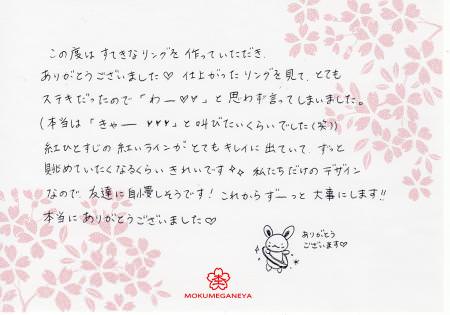 この度は すてきなリングを 作っていただき、
ありがとうございました♡ 仕上がった リングを 見て、とても
ステキだったので「わー♡♥」と 思わず言ってしまいました。
(本当は「きゃー ♥♥♥」と叫びたいくらいでした(笑))
紅ひとすじの 紅いラインが とてもキレイに 出ていて、ずっと
眺めていたくなるくらい きれいです✧✧ 私たちだけの デザイン
なので 友達に自慢しそうです! これから ずーっと 大事にします!!
本当に ありがとうございました♡
ありがとう
ございます♡
MOKUMEGANEYA